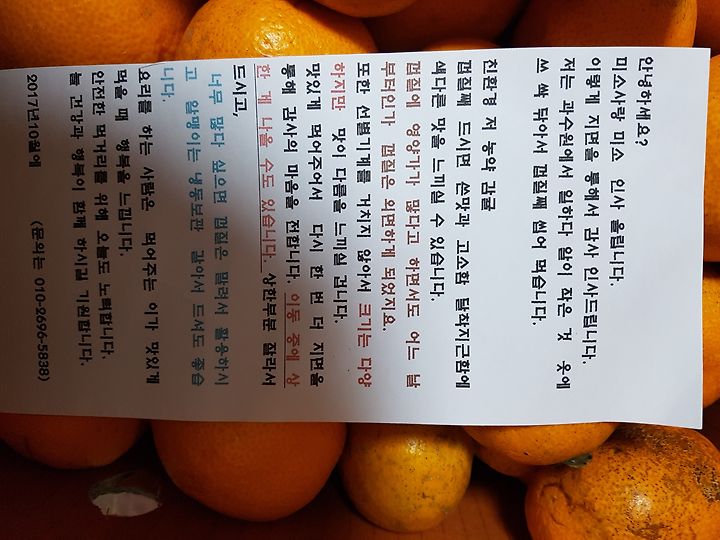 안녕하세요?
미소사랑 미소 인사 올립니다.
이렇게 지면을 통해서 감사 인사드립니다.
저는 과수원에서 일하다 알이 작은 것 옷에
쓰 싹 닦아서 껍질째 씹어 먹습니다.
친환경 저 농약 감귤
껍질째 드시면 쓴맛과 고소함 달착지근함에
색다른 맛을 느끼실 수 있습니다.
껍질에 영양가가 많다고 하면서도 어느 날
부터인가 껍질은 외면하게 되었지요.
또한 선별기계를 거치지 않아서 크기는 다양
하지만 맛이 다름을 느끼실 겁니다.
맛있게 먹어주어서 다시 한 번 더 지면을
통해 감사의 마음을 전합니다. 이동 중에 상
한 게 나올 수도 있습니다. 상한부분 잘라서
드시고,
너무 많다 싶으면 껍질은 말려서 활용하시
고 알맹이는 냉동보관 갈아서 드셔도 좋습
니다.
요리를 하는 사람은 먹어주는 이가 맛있게
먹을 때 행복을 느낍니다.
안전한 먹거리를 위해 오늘도 노력합니다.
늘 건강과 행복이 함께 하시길 기원합니다.
2017년10월에 (문의는 010-2696-5838)